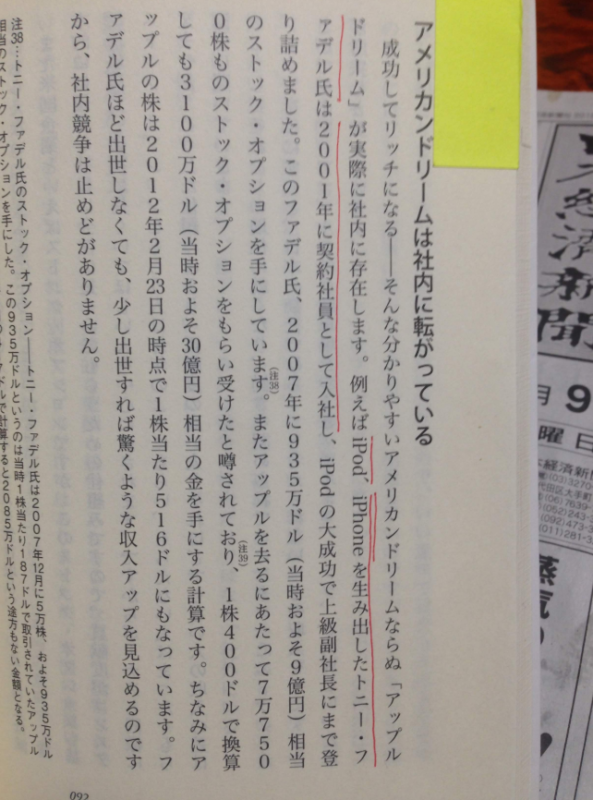 アメリカンドリームは社内に転がっている
成功してリッチになる――そんな分かりやすいアメリカンドリームならぬ「アップル
ドリーム」が実際に社内に存在します。例えばiPod、iPhoneを生み出したトニー・フ
ァデル氏は2001年に契約社員として入社し、iPodの大成功で上級副社長にまで登
り詰めました。このファデル氏、2007年に935万ドル（当時およそ9億円）相当
のストック・オプションを手にしています。(注38)またアップルを去るにあたって7万750
0株ものストック・オプションをもらい受けたと噂されており、(注39)1株400ドルで換算
しても3100万ドル（当時およそ30億円）相当の金を手にする計算です。ちなみにア
ップルの株は2012年2月23日の時点で1株当たり516ドルにもなっています。フ
ァデル氏ほど出世しなくても、少し出世すれば驚くような収入アップを見込めるのです
から、社内競争は止めどがありません。
注38…トニー・ファデル氏のストック・オプション――トニー・ファデル氏は2007年12月に5万株、およそ935万ドル
相当のストック・オプションを手にした。この935万ドルというのは当時1株当たり187ドルで取引されていたアップル
ドルで計算すると2085万ドルという途方もない金額となる。
092
経済新聞
月9
曜日
本経済新聞
(03)3270
蒸気